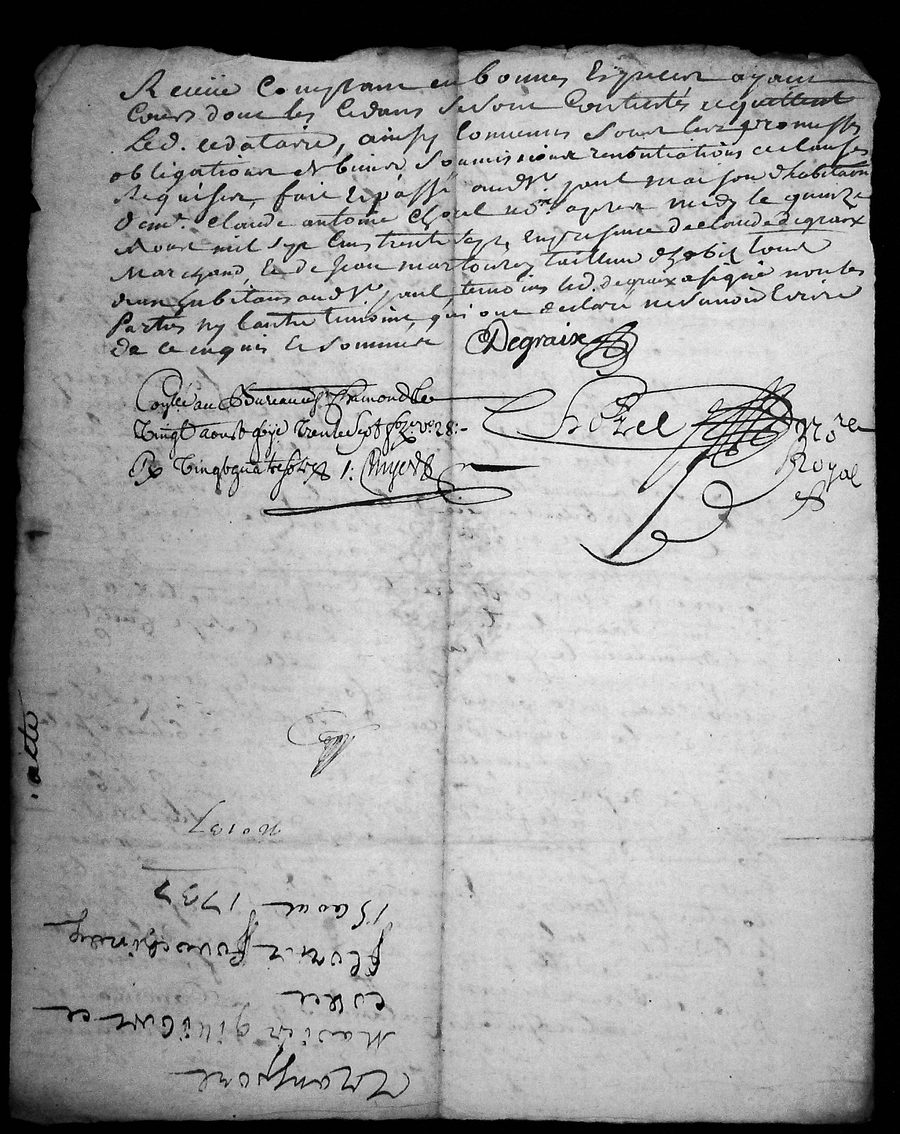 Receüe Comptant en bonnes Espesses ayant
Cours dont les Cedans se sont Contentés et quittent
Led. cedataire, ainsy Convenus sous leur promesses
obligations et biens Soumissions renontiations et clauses
Requises, fait et passé aud. St. paul maison d'habitaon
De me. Claude antoine Chozel nre. apres midy le quinze
Aoust mil sept Cens trente Sept, En presence de claude degraix
Marchand, Et de Jean martourey tailleur d'habit tous
deux habitans aud. St. paul, temoins led. degraix a signé non les
Parties ny l'autre temoins, qui ont declaré ne Savoir Ecrire
de ce enquis Et Sommés Degraix
Conlé au Bureau de St Chamond le
Vingt aoust mil viie trente Sept
Chozel
Nore
Royal
Rx Vingtquatre sols
acte
N° 137
15 aout 1737
fleurie
Mathieu et
Transport